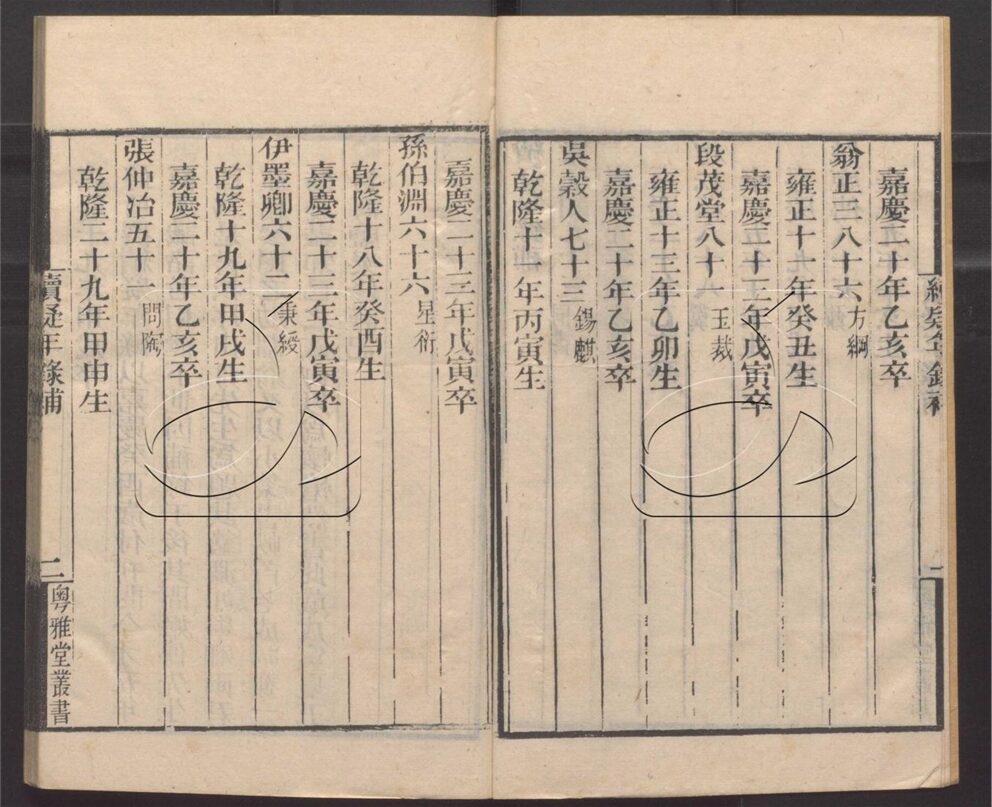 嘉慶二十年乙亥卒
翁正三八十六 方綱
雍正十一年癸丑生
嘉慶二十三年戊寅卒
段茂堂八十一 玉裁
雍正十三年乙卯生
嘉慶二十年乙亥卒
吳穀人七十三 錫麒
乾隆十一年丙寅生
嘉慶二十三年戊寅卒
孫伯淵六十六 星衍
乾隆十八年癸酉生
嘉慶二十三年戊寅卒
伊墨卿六十二 秉綬
乾隆十九年甲戌生
嘉慶二十年乙亥卒
張仲冶五十一 問陶
乾隆二十九年甲申生
續疑年錄補
二
粵雅堂叢書